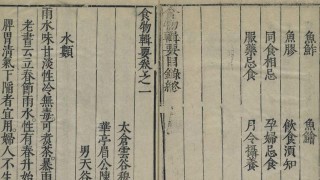 魚鮓 魚鱠
魚膠 飲食須知
同食相忌 孕婦忌食
服藥忌食 月令攝養
食物輯要目錄終
食物輯要卷之一
太倉雲谷穆
華亭眉公陳
男天谷
水類
雨水味甘淡性冷無毒可煮茶暴雨
老書云立春節雨水性有春升始
脾胃清氣下陷者宜用婦人不生